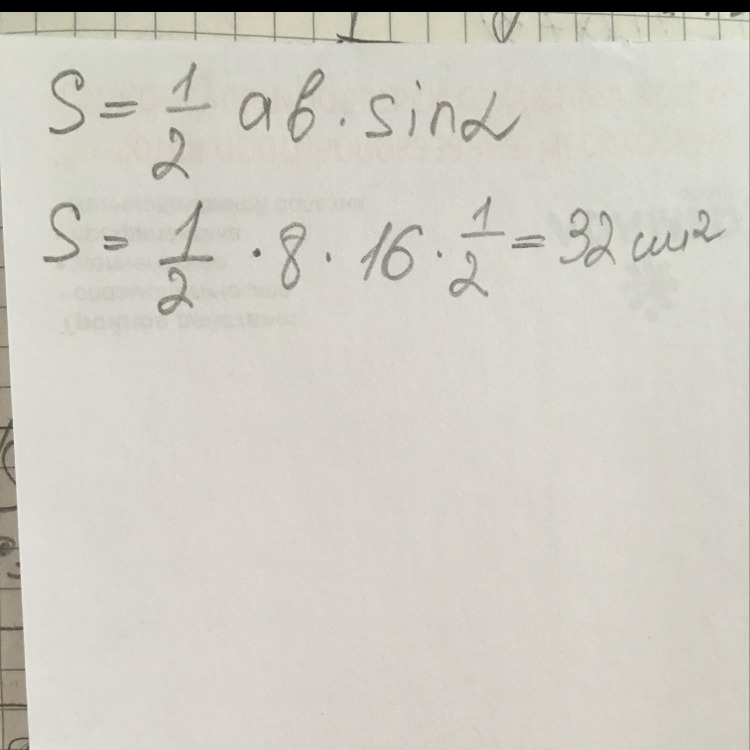 S = 1/2 ab · sinα
S = 1/2 · 8 · 16 · 1/2 = 32 см²